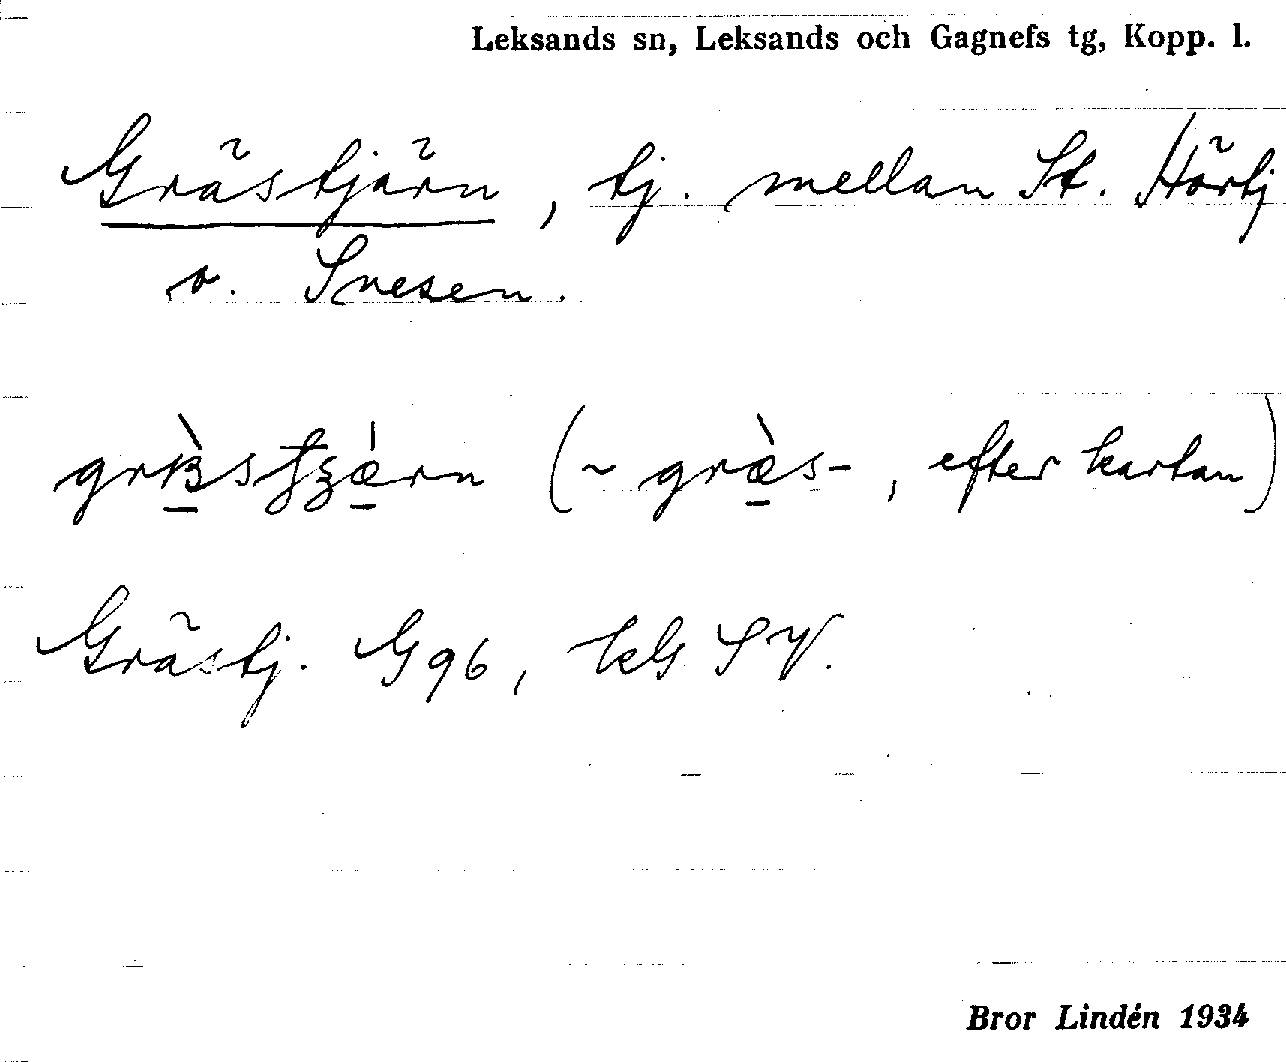 Leksands sn, Leksands och Gagnefs tg, Kopp. l.
Grästjärn, tj. mellan St. Hörtj
o. Svesen.
(~ græ̀s-, efter kartan)
Grästj. G96, kbl SV.
Bror Lindén 1934